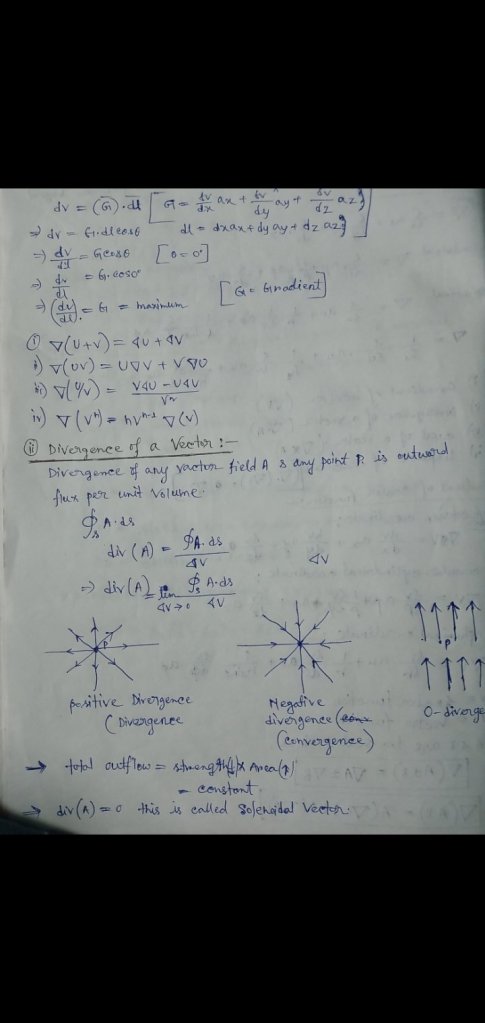 dv = (G).dl [ G = dv/dx ax + δv/dy ay + δv/dz az }
⇒ dv = G.dl cosθ dl = dxax + dy ay + dz az } ]
⇒ dv/dl = Gcosθ [θ = 0°]
⇒ dv/dl = G.cos0°
⇒ (dv/dl) = G = maximum [G = Gradient]
i) ∇(U+V) = ∇U + ∇V
ii) ∇(UV) = U∇V + V∇U
iii) ∇(U/V) = V∇U - U∇V / V²
iv) ∇(Vⁿ) = nVⁿ⁻¹ ∇(V)
ii) Divergence of a Vector :-
Divergence of any vactor field A s any point P. is outward
flux per unit volume.
∮s A.ds
div (A) = ∮A.ds / ΔV ΔV
⇒ div(A) = lim ΔV→0 ∮s A.ds / ΔV
P P
positive Divergence Negative 0-diverge
(Divergence divergence (conv
(convergence)
→ total outflow = strength(↓) x Area(↑)
= constant.
⇒ div(A) = 0 this is called Solenoidal Vector.